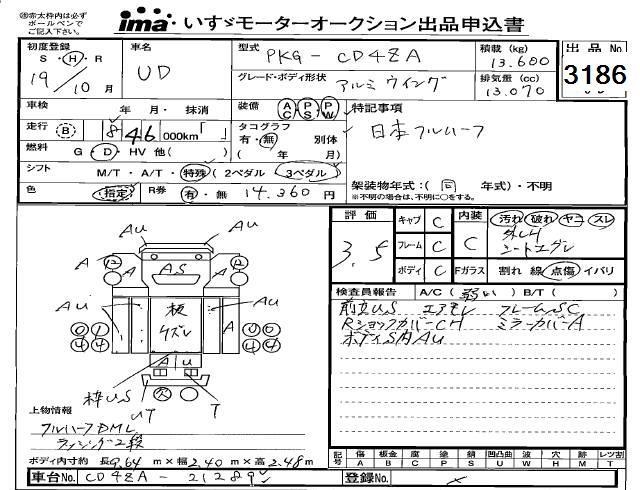 ※赤太枠内は必ず
ボールペンで
ご記入下さい。
ima いすゞモーターオークション出品申込書
初度登録 車名 型式 PKG - CD4ZA 積載 (kg) 13.600 出品No.
S・H・R 19/10月 UD グレード・ボディ形状 アルミウイング 排気量 (cc) 13.070 3186
車検 年 月・ 抹消 装備 AC PS PW 特記事項
走行 (B) 8 46 000km「 」 タコグラフ 有・無 別体 日本フルハーフ
燃料 G・D・HV 他( ) ( 年 月)
シフト M/T・A/T・特殊 (2ペダル 3ペダル) 架装物年式:( 同 年式)・不明
※不明の場合は、不明に○をする。
色 指定 R券 有・無 14.360 円
評価 3.5 キャブ C 内装 C 汚れ 破れ ヤニ スレ
フレーム C 外しH
シートエグレ
ボディ C Fガラス 割れ 線 点傷 イバリ
検査員報告 A/C( 弱い ) B/T( )
前立US エアモレ フレームSC
RショックカバーCH ミラーカバーA
ボディS内AU
AU AU
A AS A
12 12
A A
AU 板 AU
ケズレ A
0 1 0 0
4 4 4 4
A U
枠US UT 欠 T
上物情報
フルハーフDML
ラッシング2段
ボディ内寸約 長9.64 m×幅2.40 m×高2.48 m
記号 傷 板金 腐 塗 錆 凹凸曲 波 穴 跡 レツ割
A B C P S U W H M T
車台No. CD4ZA - 21289 登録No.